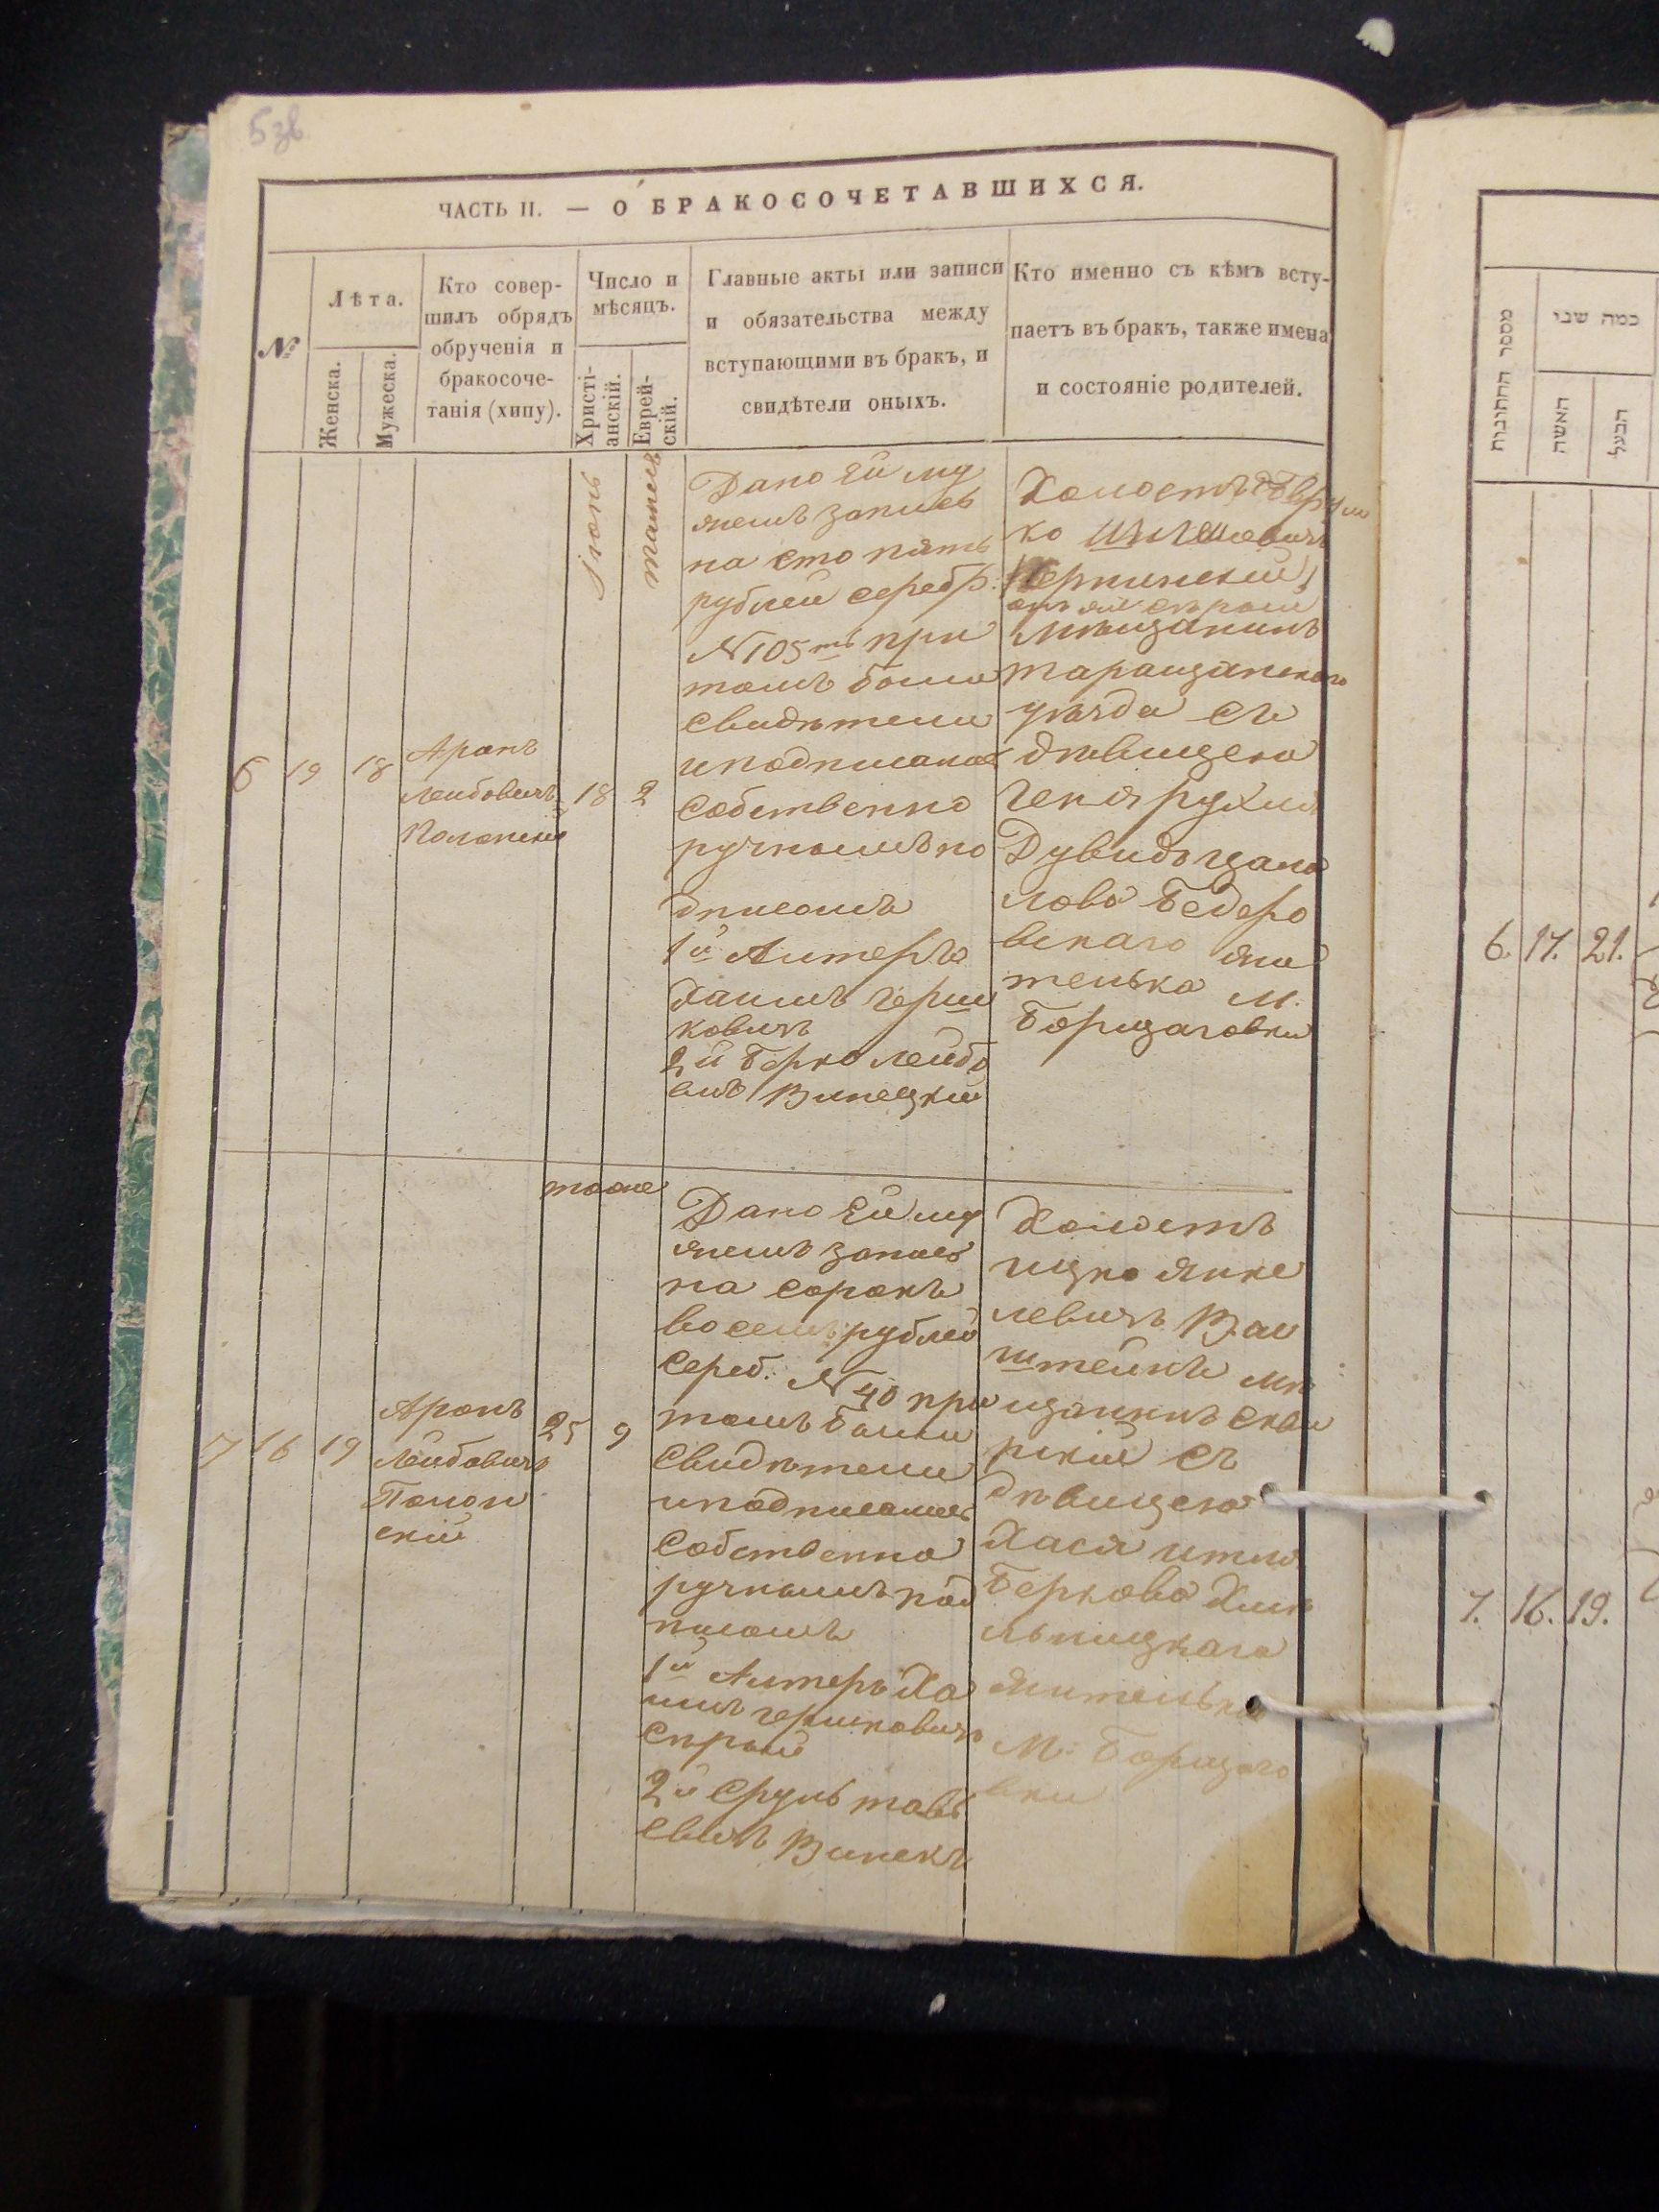 5 зв
ЧАСТЬ II. — О БРАКОСОЧЕТАВШИХСЯ.
№
Лѣта.
Женска.
Мужеска.
Кто совер-
шилъ обрядъ
обрученія и
бракосоче-
танія (хипу).
Число и
мѣсяцъ.
Христі-
анскій.
Еврей-
скій.
Главные акты или записи
и обязательства между
вступающими въ бракъ, и
свидѣтели оныхъ.
Кто именно съ кѣмъ всту-
паетъ въ бракъ, также имена
и состояніе родителей.
6
19
18
Аронъ
Лейбовичъ
Полонскій
Іюнь
18
тамузъ
2
Дано ей му
жемъ запись
на сто пять
рублей серебр.
N 105 при
томъ были
свидѣтели
и подписались
собственно
ручнымъ по
дписомъ
1й Алтеръ
Хаимъ Герш
ковичъ
2й Берко Лейбо
вичъ Винецкій
Холостъ
ко
мѣщанинъ
таращанского
уѣзда съ
дѣвицею
Геня рухля
Дувидъ
лова Бедеро
вскаго жи
телька м.
Борщаговки
7
16
19
Аронъ
Лейбовичъ
Полон
скій
тоже
25
9
Дано ей му
жемъ запись
на сорокъ
восемь рублей
сереб. N 40 при
томъ были
свидѣтели
и подписались
собственно
ручнымъ под
писомъ
1й Алтеръ Ха
имъ Гершковичъ
Сѣрый
2й Сруль
Винекъ
Холостъ
Ицко Янке
левичъ Ваи
штейнъ мѣ
щанинъ сквы
рскій съ
дѣвицею
Хася итля
Беркова Хмѣ
льницкаго
жителька
М. Борщаго
вки
מספר החתונות
כמה שני
האשה
הבעל
6. 17. 21.
7. 16. 19.